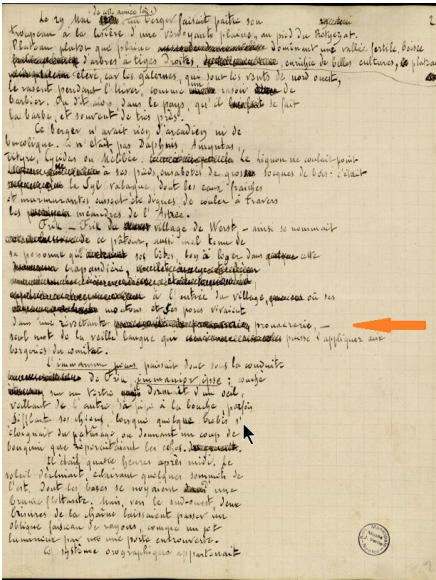 de cette année-là
Le 29 Mai un berger faisait paître son
troupeau à la lisière d'une verdoyante plaine, au pied du Retyezat.
Plateau plutôt que plaine dominant une vallée fertile, boisée
d'arbres à tiges droites, enrichie de belles cultures, ce plateau
élevé, car les galernes, qui sont les vents de nord ouest,
le rasent pendant l'hiver, comme rasoir de
barbier. On dit alors, dans le pays, qu'il se fait
la barbe, et souvent de très près.
Ce berger n'avait rien d'arcadien ni de
bucolique. Ce n'était pas Daphnis, Amyntas,
Tityre, Lycidas ou Mélibée. Le Lignon ne coulait point
à ses pieds, ensabotés de gros socques de bois: c'était
la Syl valaque, dont les eaux fraîches
et murmurantes eussent été dignes de couler à travers
les méandres de l'Astrée.
Frik – Frik du village de Werst, – ainsi se nommait
ce pâtour, aussi mal tenu de
sa personne que ses bêtes, bon à loger dans cette
crapaudière,
à l'entrée du village, où ses
moutons et ses porcs vivaient
dans une révoltante prouacrerie, –
seul mot de la vieille langue qui puisse s'appliquer aux
bergeries du comitat.
L'immanum pecus paissait donc sous la conduite
de Frik, immanior ipse: couché
sur un tertre dormait d'un œil,
veillant de l'autre, sa pipe à la bouche, parfois
sifflant ses chiens, lorsque quelque brebis s'
éloignait du pâturage, ou donnant un coup de
bouquin que répercutaient les échos.
Il était quatre heures après midi. Le
soleil déclinait, éclairant quelques sommets de
l'est, dont les bases se noyaient une
brume flottante. Mais, vers le sud-ouest, deux
brisures de la chaîne laissaient passer un
oblique faisceau de rayons, comme un jet
lumineux par une porte entrouverte.
Ce système orographique appartenait